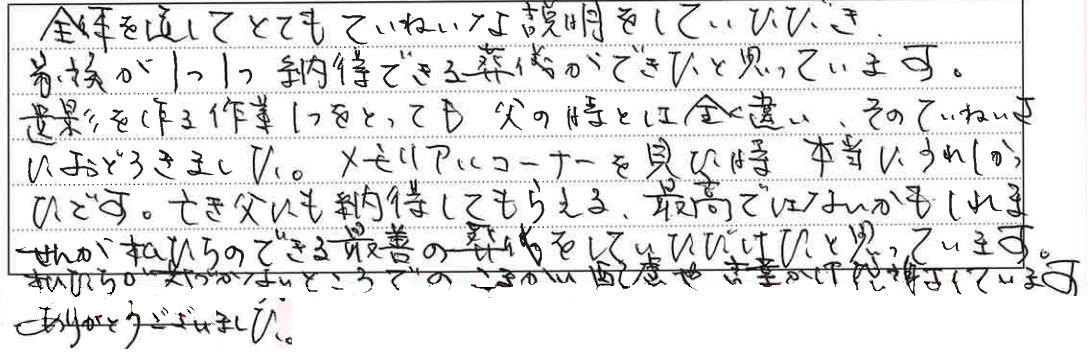 全体を通してとてもていねいな説明をしていただき、
家族が1つ1つ納得できる葬儀ができたと思っています。
遺影を作る作業1つをとっても父の時とは全く違い、そのていねいさ
におどろきました。メモリアルコーナーを見た時本当にうれしかっ
たです。亡き父にも納得してもらえる、最高ではないかもしれま
せんが私たちのできる最善の葬儀をしていただけたと思っています。
私たちが気づかないところでの 配慮や言葉かけ ています
ありがとうございました。